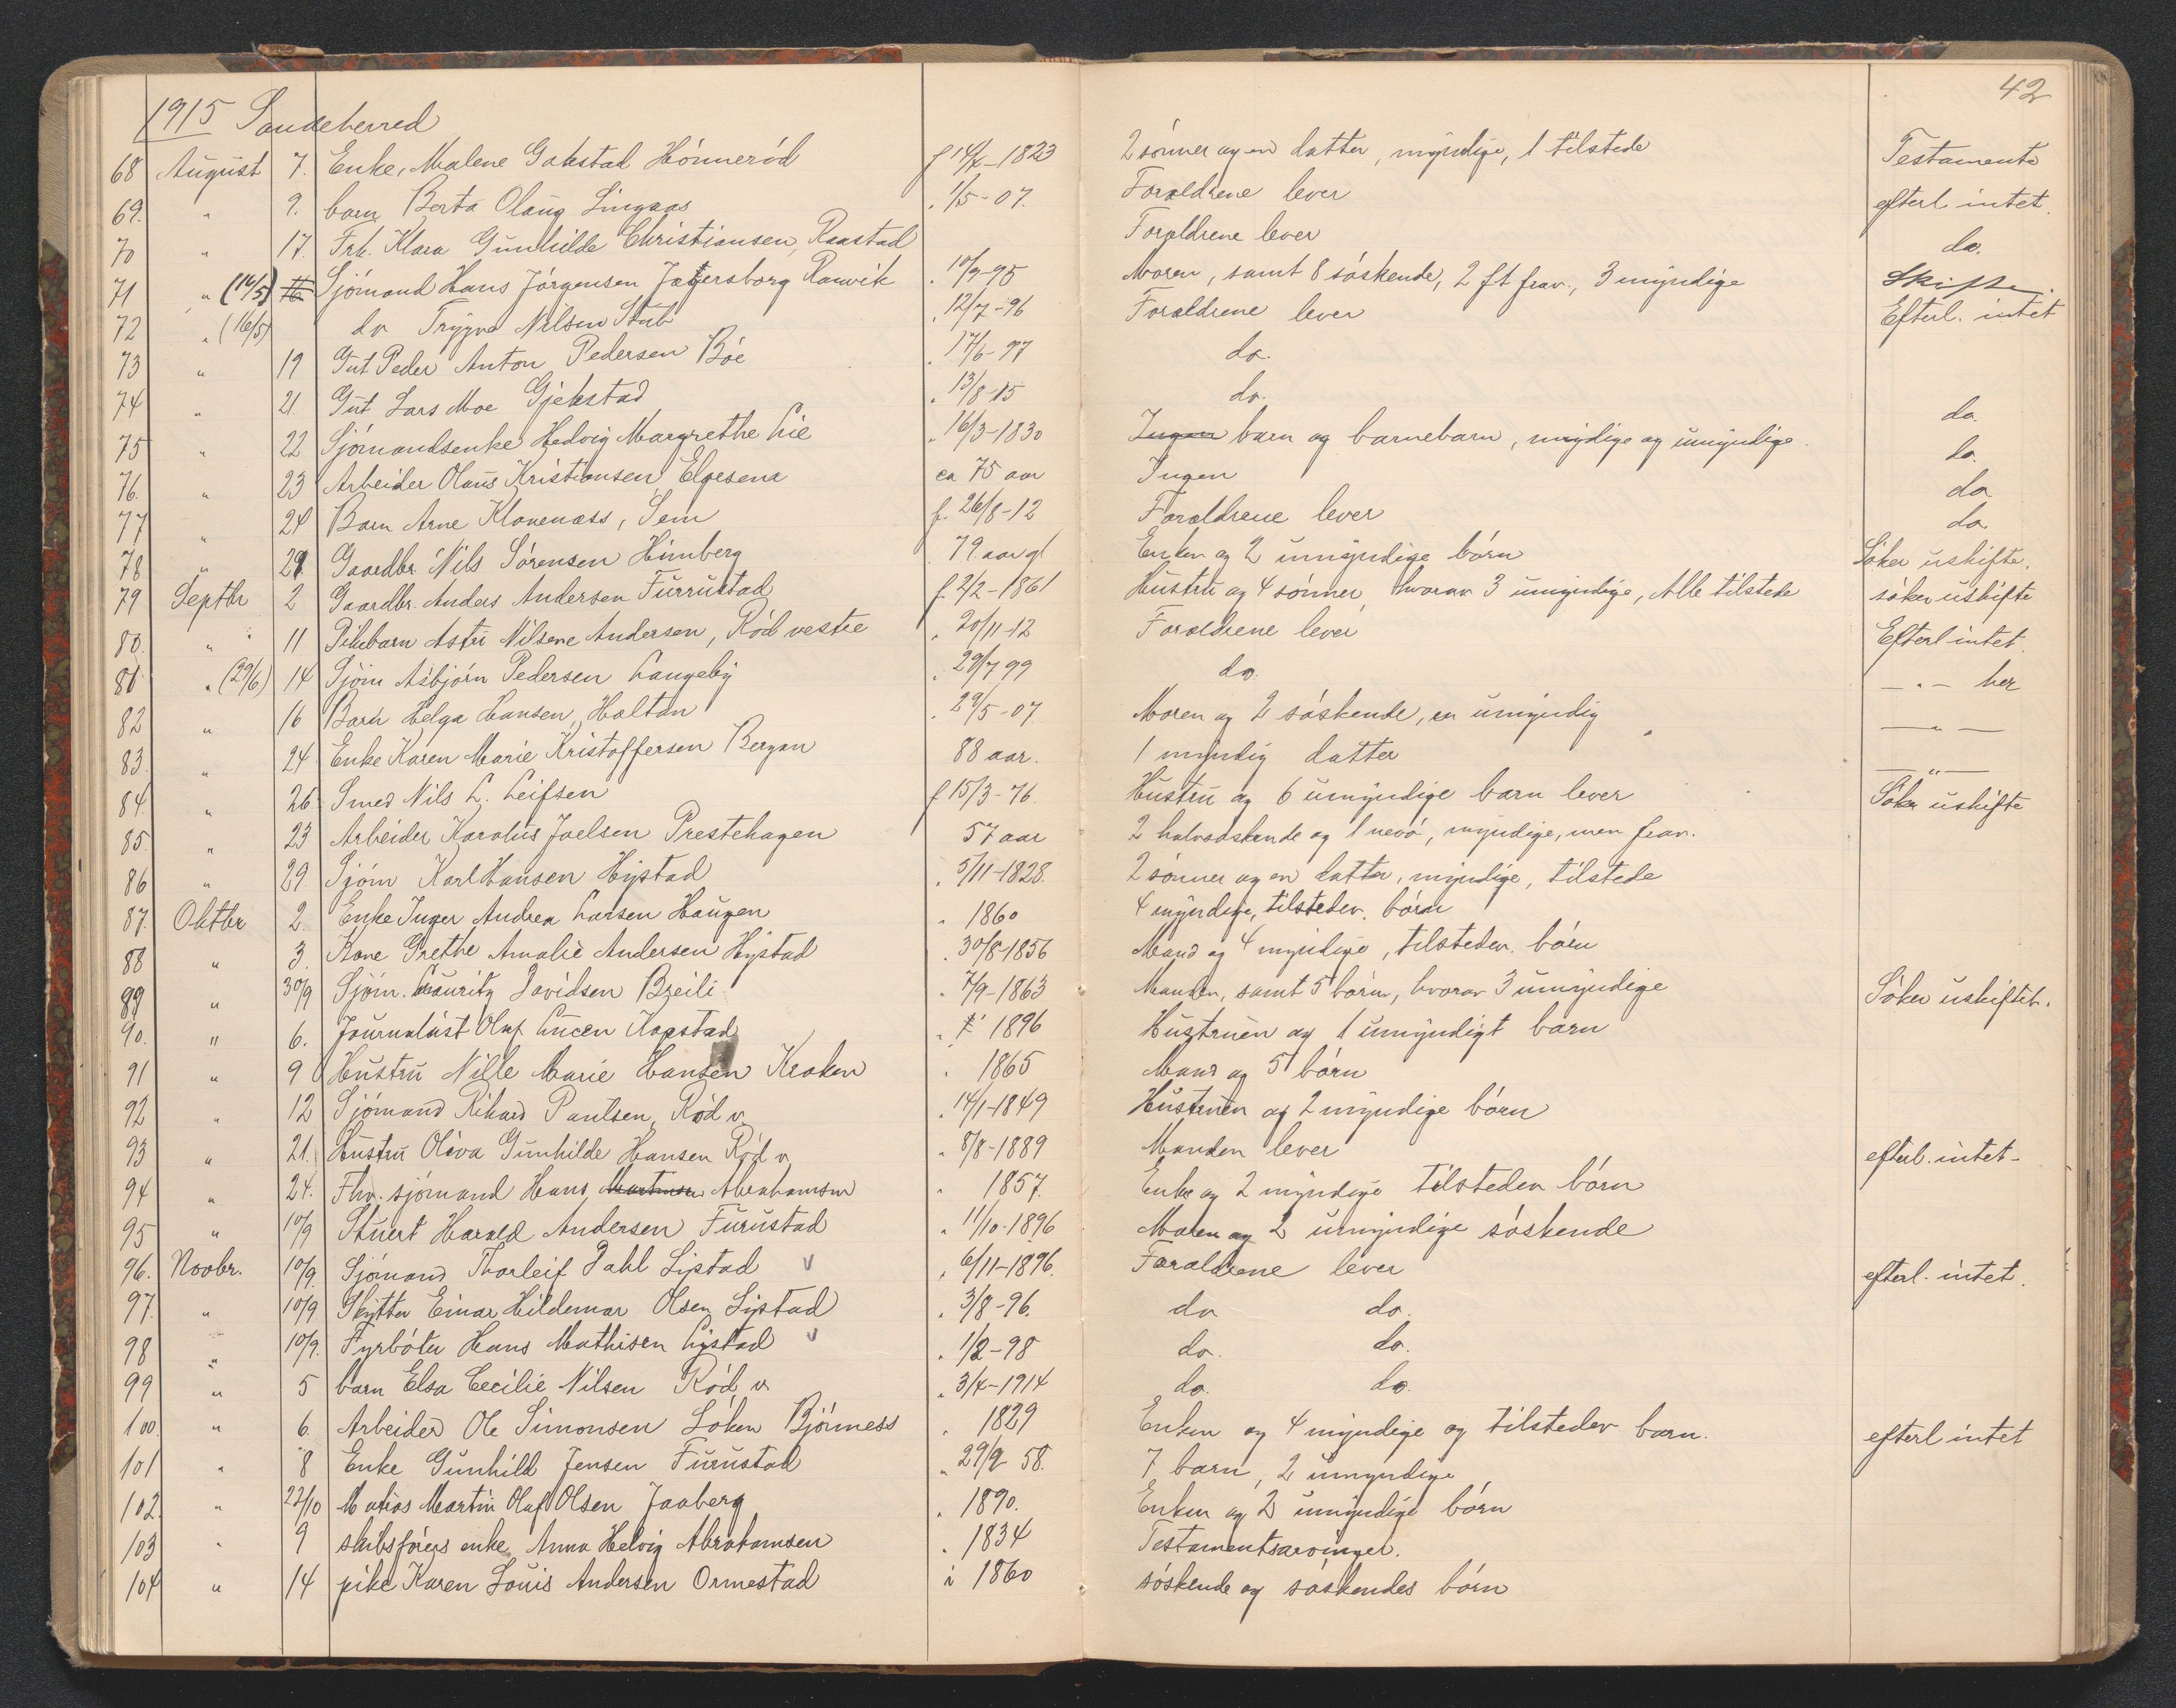 42
1915 Sandeherred
68 August 7. Enke, Malene Gokstad Hönneröd f 14/4-1823 2 sönner og en datter, myndige, 1 tilstede Testamente
69. " 9. barn Berta Olaug Lingaas " 1/5-07. Forældrene lever efterl intet.
70 " 17. Frk. Klara Gunhilde Christiansen, Raastad Forældrene lever do.
71 " (14/5) 16. Sjömand Hans Jörgensen Jægersborg Ranvik " 10/9-95 Moren, samt 8 söskende, 2 ft frav., 3 myndige Skifte.
72 " (16/5) do Trygve Nilsen Stub " 12/7-96 Forældrene lever Efterl. intet
73 " 19 Gut Peder Anton Pedersen Böe " 17/6-97 do.
74 " 21. Gut Lars Moe Gjekstad " 13/8-15 do. do.
75 " 22 Sjömandsenke Hedvig Margrethe Lie " 16/3-1830 Ingen barn og barnebarn, mydige og umyndige. do.
76. " 23 Arbeider Olaus Kristiansen Elgesena ca 75 aar Ingen do
77 " 24 Barn Arne Klavenæss, Sem f. 26/8-12 Forældrene lever do.
78 " 29 Gaardbr. Nils Sörensen Himberg 79 aar gl Enken og 2 umyndige börn Söker uskifte.
79 Septbr 2 Gaardbr. Anders Andersen Furrustad f. 2/2-1861 Hustru og 4 sönner, hvorav 3 umyndige, Alle tilstede söker uskifte
80. " 11 Pikebarn Astri Nilsene Andersen, Röd vestre " 20/11-12 Forældrene lever Efterl intet.
81 " (29/6) 14 Sjöm Asbjörn Pedersen Langeby " 29/7 99 do. — " — her
82 " 16 Barn Helga Hansen, Haltan " 29/5-07 Moren og 2 söskende, en umyndig — " —
83. " 24 Enke Karen Marie Kristoffersen Bergan 88 aar. 1 myndig datter — " —
84. " 26 Smed Nils L. Leifsen f 15/3-76. Hustru og 6 umyndige barn lever Söker uskifte
85. " 23 Arbeider Karolius Joelsen Prestehagen 57 aar 2 halvsöskende og 1 nevö, myndige, men frav.
86 " 29 Sjöm Karl Hansen Hystad " 5/11-1828. 2 sönner og en datter, myndige, tilstede
87. Oktbr 2. Enke Inger Andrea Larsen Haugen " 1860 4 myndige, tilstedev. börn
88 " 3. Kone Grethe Amalie Andersen Hystad " 30/8-1856 Mand og 4 myndige, tilstedev. börn
89 " 30/9 Sjöm. Lauritz Davidsen Breili " 7/9-1863 Manden, samt 5 börn, hvorav 3 umyndige Söker uskiftet.
90. " 6. Journalist Olaf Lucen Kogstad " 1896 Hustruen og 1 umyndigt barn
91 " 9 Hustru Nille Marie Hansen Kroken " 1865 Mand og 5 börn
92 " 12 Sjömand Rikard Paulsen, Röd v. " 14/1-1849 Hustruen og 2 myndige börn
93 " 21. Hustru Oliva Gunhilde Hansen Röd v. " 8/8-1889 Manden lever efterl. intet-
94 " 24. Fhv. sjömand Hans Martinsen Abrahamsen " 1857. Enke og 2 myndige tilstedev börn
95 " 10/9 Stuert Harald Andersen Furustad " 11/10-1896 Moren og 2 umyndige söskende
96. Novbr. 10/9. Sjömand Thorleif Dahl Listad v " 6/11-1896. Forældrene lever efterl. intet.
97. " 10/9 Skytter Einar Hildemar Olsen Lystad " 3/8-96. do do.
98 " 10/9. Fyrböter Hans Mathisen Lystad v " 1/2-98 do. do.
99 " 5 barn Elsa Cecilie Nilsen Röd v. " 3/4-1914 do. do.
100. " 6. Arbeider Ole Simonsen Löken Björnness " 1829 Enken og 4 myndige og tilstedev barn. efterl intet
101 " 8 Enke Gunhild Jensen Furustad " 29/9 58. 7 barn, 2 umyndige
102. " 22/10 Matias Martin Olaf Olsen Jaaberg " 1890. Enken og 2 umyndige börn
103 " 9 skibsförers enke Anna Helvig Abrahamsen " 1834 Testamentsarvinger.
104 " 14 pike Karen Louis Andersen Ormestad " 1860 söskende og söskendes börn